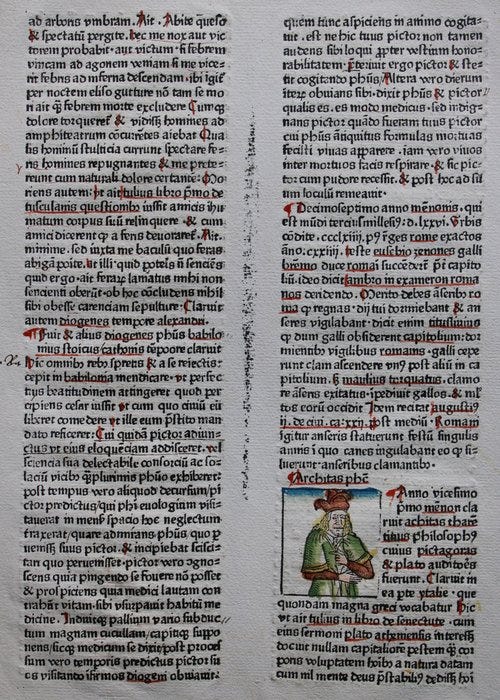 ad arbons vmbram. Ait. Abite queso
& spectatū pergite. hec me nox aut vic
torem probabit. aut victum. si febrem
vincam ad agonem veniam si me vice-
rit febris ad inferna descendam. ibi igit
per noctem eliso gutture nō tam se mo
ri ait q̄ febrem morte excludere Cumq̄
dolore torqueret̄ & vidiss̄ homines ad
amphiteatrum cōcurrētes aiebat Qua
lis hominū stulticia currunt spectare fe-
ris homines repugnantes & me prete-
reunt cum naturali dolore certante. Mo
riens autem. vt ait tulius libro pͥmo de
tusculanis questionibꝰ iussit amicis inhu
matum corpus suū relinquere. & cum
amici dicerent q̄ a fens deuoraret̄. Ait.
minime. sed iuxta me baculū quo feras
abigā poite. at illi. quid potes n̄ senciēs
quid ergo. ait ferarꝝ lamatus mihi non
sencienti oberūt. ob hoc cōcludens nihil
sibi obesse carenciam sepulture. Claruit
autem diogenes tempore alexandri.
¶ Fuit & alius diogenes phūs babilo
nius stoicus cathonis tēpore claruit
Hic omnibꝰ rebꝰ spretis & a se reiectis.
cepit in babilonia mendicare. vt perfec
tiꝰ beatitudinem attingeret quod per
cipiens cesar iussit vt cum quo ciuiū eū
liberet comedere vt ille eum p̄stito man
dato reficeret. Cui quidā pictor adiun-
ctus vt eius eloquēciam addisceret. vel
sciencia sua delectabile consorciū ac so-
lacium vicibꝰ q̄plurimis phūo exhiberet.
post tempus vero aliquod decursum pi
ctor predictus qui phi euologium visi-
tauerat in menß spacio hoc neglectum
traxerat quare admirans phūs quo p̄
uenisß suus pictor. & incipiebat scisci-
tan quo peruenisset. pictor vero ogno-
scens quia pingendo se fouere nō posset
& prospiciens quia medici lautam con
trahūt vitam. sibi vsurpauit habitū me
dicine. Induitq̄ pallium vario subduc
tum magnam cucullam capitiqꝫ suppo
nens sicqꝫ medicum se dixit post proces
sum vero temporis predictus pictor su
os visitando infirmos diogem obuiauit.
quem tūnc aspiciens in animo cogita-
uit. est ne hic tuus pictor non tamen
audens sibi loqui ꝓpter vestium hono-
rabilitatem. preteriuit ergo pictor & ste-
tit cogitando phūs Altera vero dierum
iterꝫ obuians sibi. dixit phūs & pictor
qualis es. es modo medicus. sed indig-
nans pictor quādo fueram tuus pictor
cui phūs ātiquitus formulas mortuas
fecisti viuas apparere. iam vero viuos
inter mortuos facis respirare. & sic pic-
tor cum pudore recessit. & post hoc ad sū
um loculū remeauit.
¶ Decimoseptimo anno mēnonis. qui
est mūdi terciusmillesiꝰ. d. lxxvi. Vrbis
cōdite. ccclxiiii. p̄ ges rome exactos
āno. cxxiiij. teste eusebio zenones galli
bremo duce romaī succederūt p̄t capito
liū. ideo dicit ambro in exameron roma
nos deridendo. Merito debes ascribꝰ ro
ma q̄ regnas. dij tui dormiebant & an
seres vigilabant. dicit enim titusliuius
q̄ dum galli obsiderent capitolium. dor
mientibꝰ vigilibus romanis. galli cepe
runt clam ascendere vnꝰ post aliū in ca
pitolium. ß maulius torquatus. clamo
re āseris exitatus. īpediuit gallos. & ml
tos eorū occidit Idem recitat augustiꝰ
ij. de ciui. ca. xxij. post medium. Romani
igitur anseris statuerunt festū singulis
annis ī quo canes iungulabant eo q̄ si
luerunt. anseribus clamantibꝰ.
¶ Architas phūs
¶ Anno vicesimo
pͥmo menon cla
ruit achitas thare
tinus philosophꝰ
cuius pictagoras
& plato auditores
fuerunt. Claruit in
ea pte ytalie. que
quondam magna greci vocabatur Hic
vt ait tulius in libro de senectute. cum
eius sermoni plato atheniensis interessß
docuit nullam capitaliorē pestem q̄ cor
poris voluptatem hoībꝰ a natura datam
cum nil mente deus p̄stabiliꝰ dedisß hoī